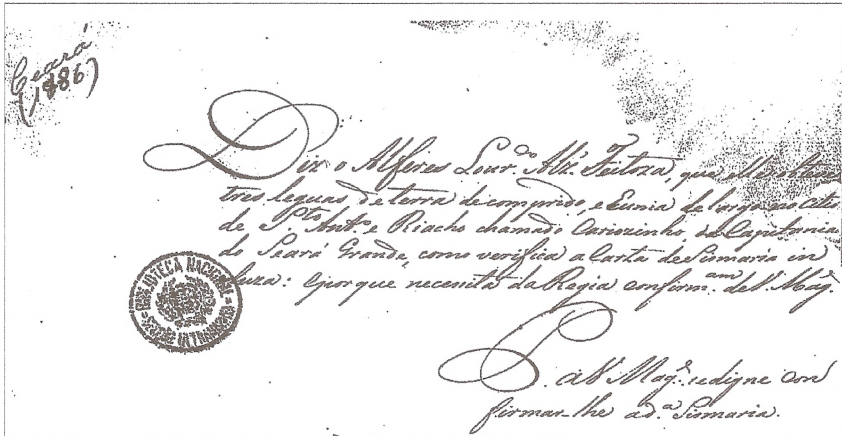 Ceará
(1886)
Diz o Alferes Lour.ço Alz. Feitoza, que
tres leguas de terra de comprido, e huma de largo no citio
de S.to Ant.o e Riacho chamado Cariozinho da Capitania
do Seará Grande, como verifica a Carta de Sismaria in
cluza: e porque necessita da Regia confirm.am de V. Mag.e
P. a V. Mag.e se digne con
firmar-lhe a d.a Sismaria.
BIBLIOTECA NACIONAL